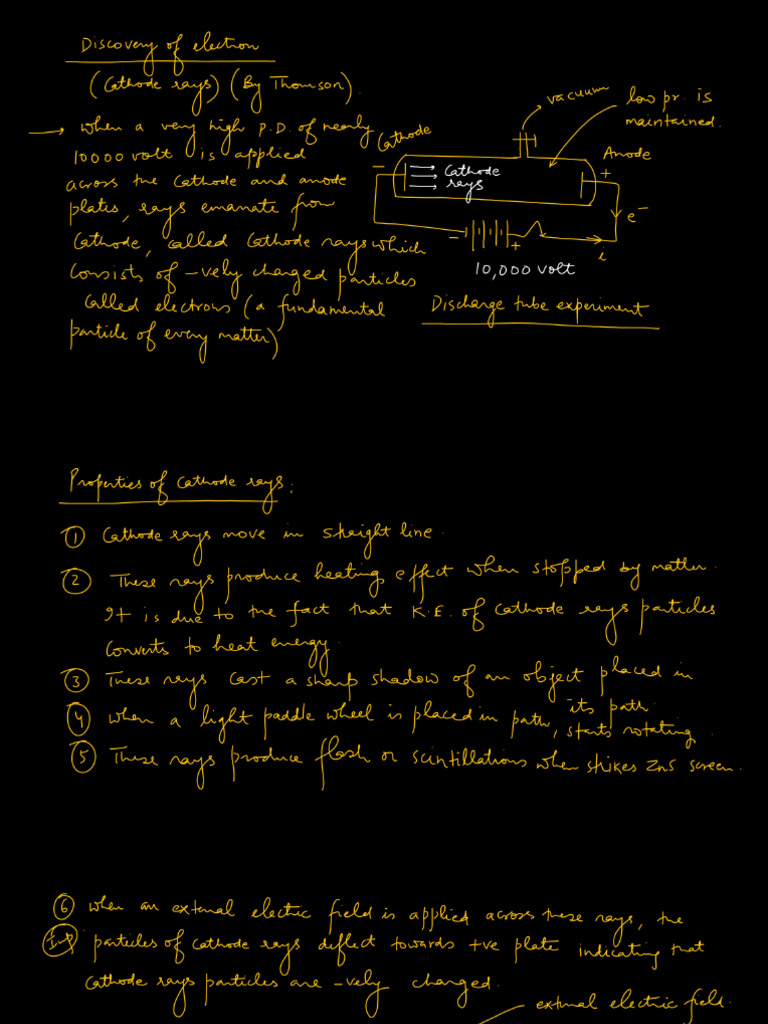 Discovery of electron
(Cathode rays) (By Thomson).
→ when a very high P.D. of nearly
10000 volt is applied
across the cathode and anode
plates, rays emanate from
Cathode, called Cathode rays which
consists of -vely charged particles
called electrons (a fundamental
particle of every matter)
vacuum
low pr. is
maintained.
Cathode
Anode
-
+
Cathode
rays
e⁻
-
+
i
10,000 volt
Discharge tube experiment
Properties of Cathode rays:
① Cathode rays move in straight line.
② These rays produce heating effect when stopped by matter.
It is due to the fact that K.E. of cathode rays particles
converts to heat energy.
③ These rays cast a sharp shadow of an object placed in
its path.
④ when a light paddle wheel is placed in path, starts rotating.
⑤ These rays produce flash or scintillations when strikes ZnS screen.
⑥ when an external electric field is applied across these rays, the
Imp particles of cathode rays deflect towards +ve plate indicating that
cathode rays particles are -vely charged.
external electric field.